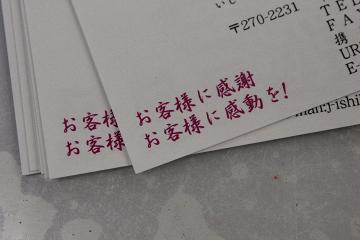 〒270-2231
TE
FA
携
UR
E-
お客様に感謝
お客様に感動を!
お客様
お客様